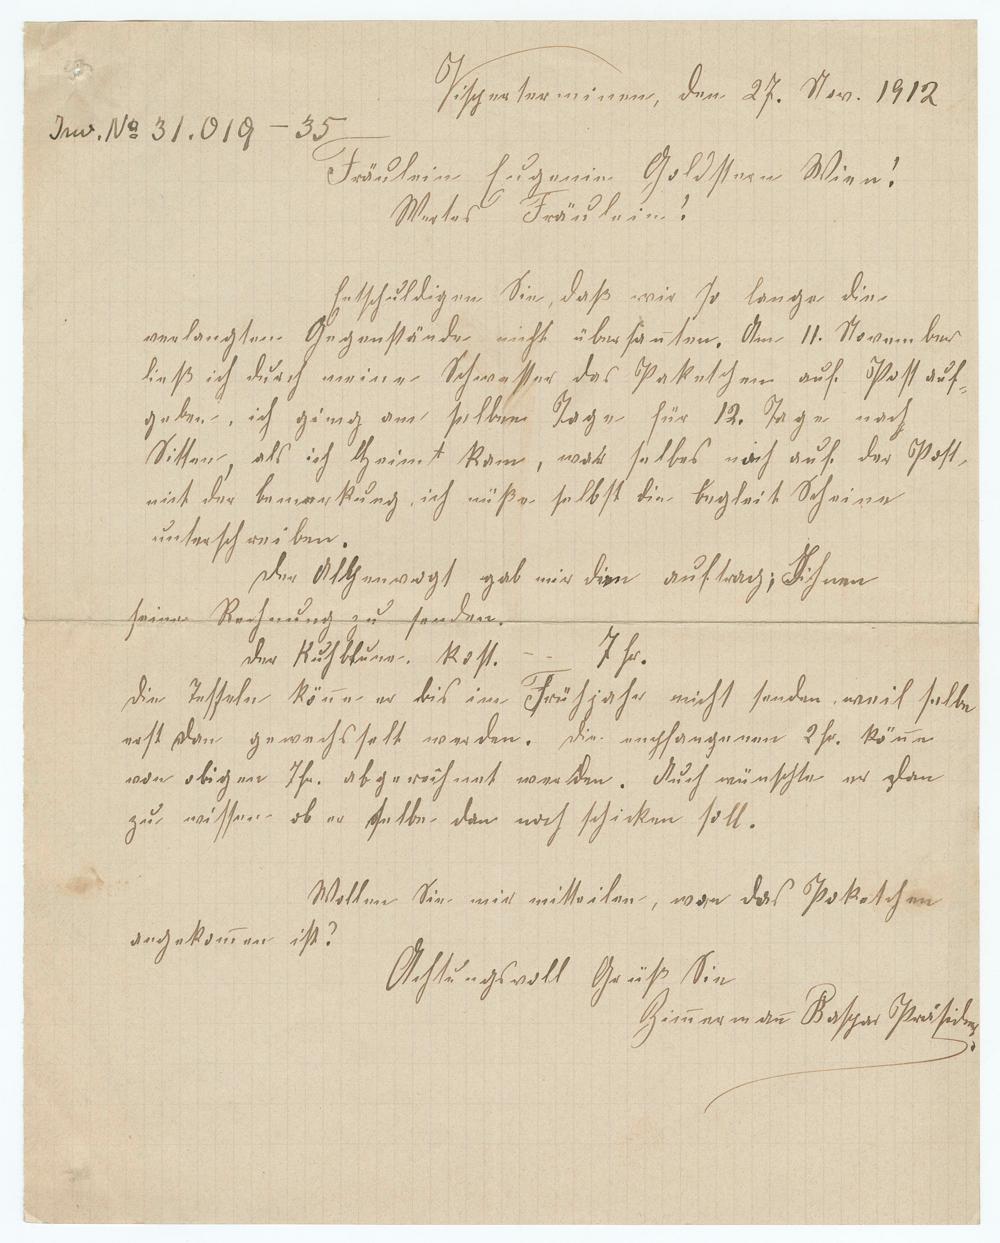 Visperterminen, den 27. Nov. 1912
Inv. No 31.019 – 35
Fräulein Eugenie Goldstern Wien!
Wertes Fräulein!
Entschuldigen Sie, daß wir so lange die
verlangten Gegenstände nicht übersanten. Am 11. November
ließ ich durch meine Schwester das Paketchen auf Post auf-
geben, ich ging am selben Tage für 12. Tage nach
Sitten, als ich heim kam, war selbes noch auf der Post,
mit der bemerkung, ich müße selbst die begleit Scheine
unterschreiben.
Der Alpenvogt gab mir den auftrag; Ihnen
seine Rechnung zu senden.
der Kuhblume. kost. – – 7 fr.
die Tesseln kön̄e er bis im Frühjahr nicht senden, weil selbe
erst dan gewechsselt werden. Die empfangenen 2 fr. kön̄e
von obigen 7 fr. abgerechnet werden. Auch wünschte er dan
zu wissen ob er selbe dan noch schicken soll.
Wollen Sie mir mitteilen, wan das Paketchen
angekom̄en ist?
Achtungsvoll Grüß Sie
Zim̄erman̄ Kaspar Präsident